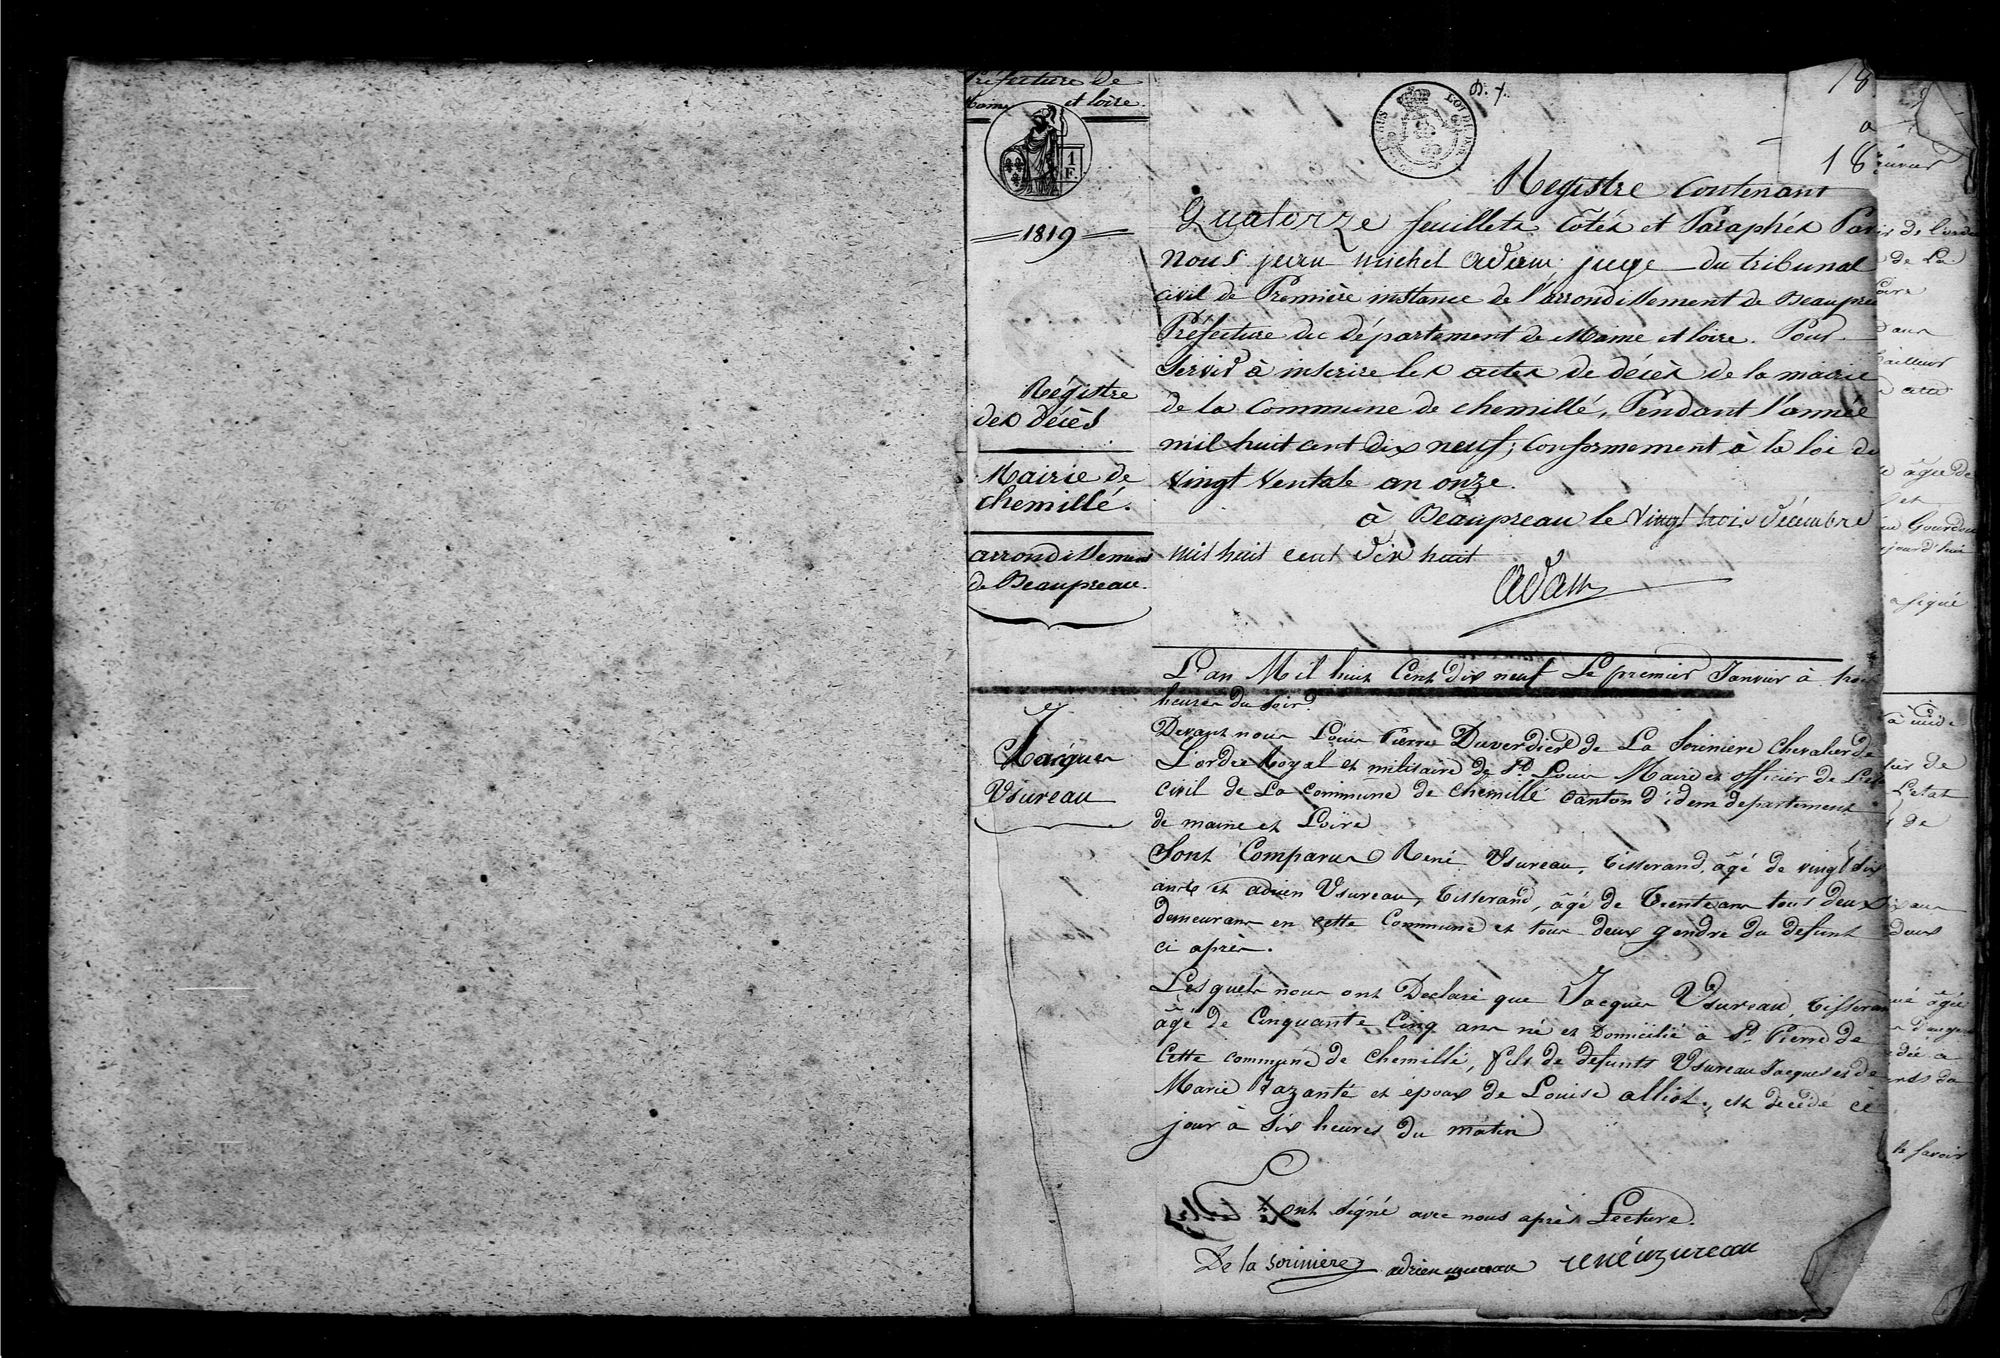 Préfecture de
Maine et loire.
1 F.
1819
Régistre
des décès
Mairie de
chemillé.
arrondissement
de Beaupreau.
18
Registre contenant
Quatorze feuillets Cotés et Paraphés Par
nous jean michel Adam, juge du tribunal
civil de Première instance de l'arrondissement de Beaupreau
Préfecture du département de Maine et loire. Pour
Servir à inscrire les actes de décès de la mairie
de la commune de chemillé, Pendant l'année
mil huit cent dix neuf, Conformement à la loi de
vingt Ventose an onze.
à Beaupreau le vingt trois décembre
mil huit cent dix huit
Adam
L'an Mil huit Cent dix neuf Le premier Janvier à
heures du soir
Jacques
Usureau
Devant nous Louis Pierre Duverdier de La Sorinière chevalier de
L'ordre Royal et militaire de St Louis Maire et officier de L'etat
civil de La commune de chemillé canton d'idem departement
de maine et Loire
Sont Comparus René Usureau, tisserand, âgé de vingt six
ans et adrien Usureau, tisserand, âgé de trente ans tous deux
demeurans en cette Commune et tous deux gendre du defunt
ci après.
Lesquels nous ont Declaré que Jacques Usureau, tisserand
âgé de Cinquante Cinq ans né et Domicilié à St Pierre de
Cette commune de chemillé, fils de defunts Usureau Jacques et de
Marie et epoux de Louise alliot, est decedé ce
jour à six heures du matin
Ont signé avec nous après Lecture.
De la Sorinière adrien usureau rené uzureau